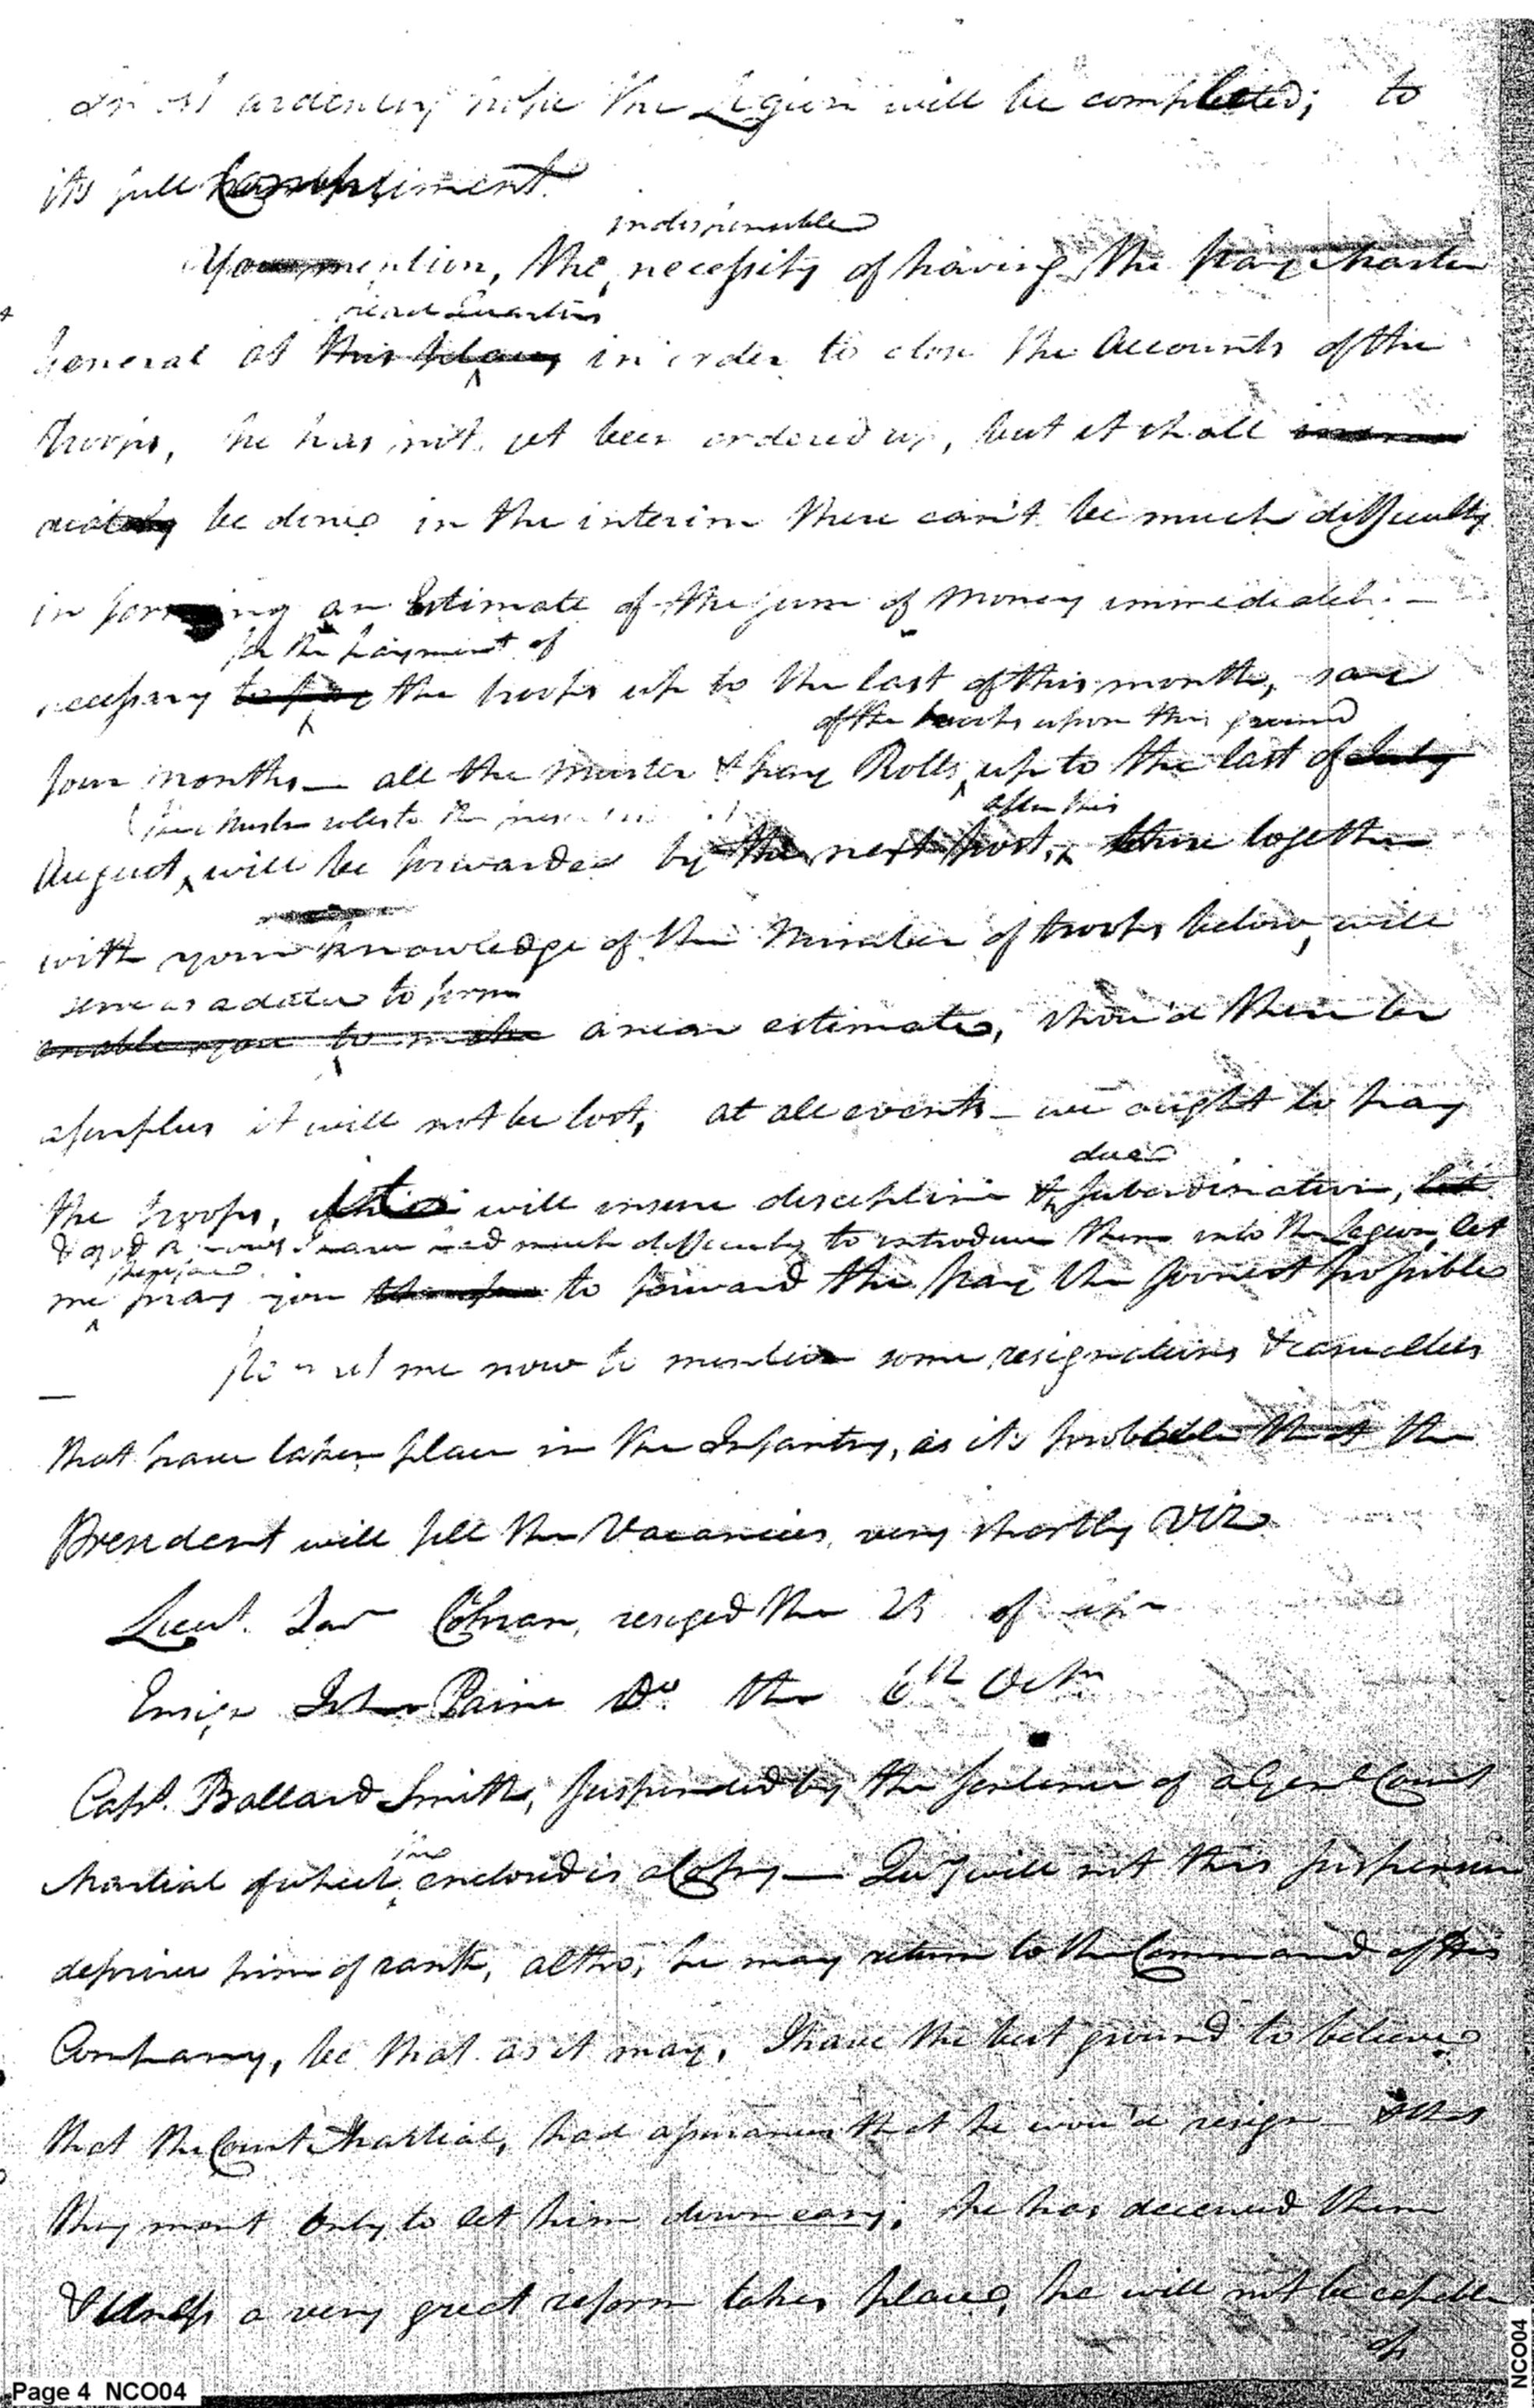 most ardently hope the Legion will be completed; to
its full Compliment.
indispensible
You mention, the necessity of having the Pay Master
Head Quarters
General at this place in order to close the Accounts of the
troops, he has not yet been ordered up, but it shall imme
diately be done in the interim there can't be much difficulty
in forming an Estimate of the sum of Money immediately
for the payment of
necessary to pay the troops up to the last of this month, say
of the troops upon this ground
four months — all the muster & pay Rolls up to the last of July
after this
August, will be forwarded by the next post, these together
with your knowledge of the Number of troops below, will
serve as a data to form
enable you to make a near estimate, shou'd there be
a surplus it will not be lost, at all events — we ought to pay
due
the troops, it will insure discipline & subordination, let
& God knows I have had much difficulty to introduce them into the Legion, let
therefore
me pray you therefore to forward the pay the soonest possible
— Permit me now to mention some resignations & casualties
that have taken place in the Infantry, as it's probable that the
President will fill the Vacancies, very shortly Viz
Lieut. Cobran, resiged the 25 of
Ensign John Paine Do. the 6th Octr
Capt. Ballard Smith, suspended by the sentence of a Genl Court
the
Martial of which enclosed is a Copy — Quy will not this suspension
deprive him of rank, altho, he may return to the Command of His
Company, be that as it may, I have the best ground to believe
that the Court Martial, had assurances that he wou'd resign — & that
they ment only to let him down easy; he has deceived them
& unless a very great reform takes place, he will not be capable
of
Page 4 NCO04
NCO04